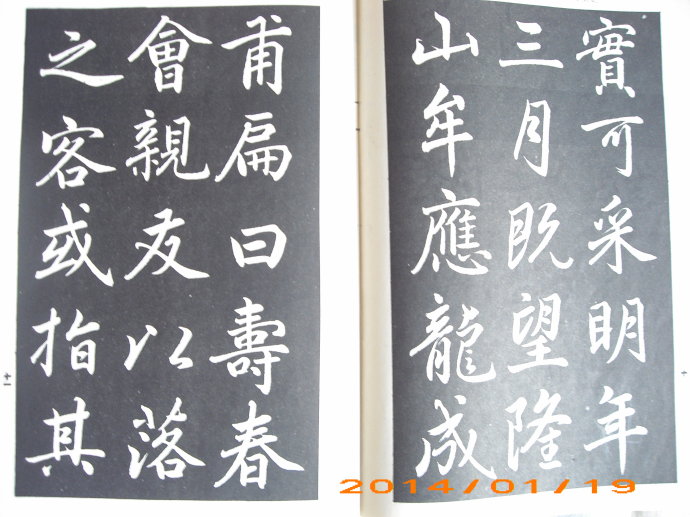 實可采明年
三月既望隆
山牟應龍成
甫扁曰壽春
會親友以落
之客或指其
2014/01/19